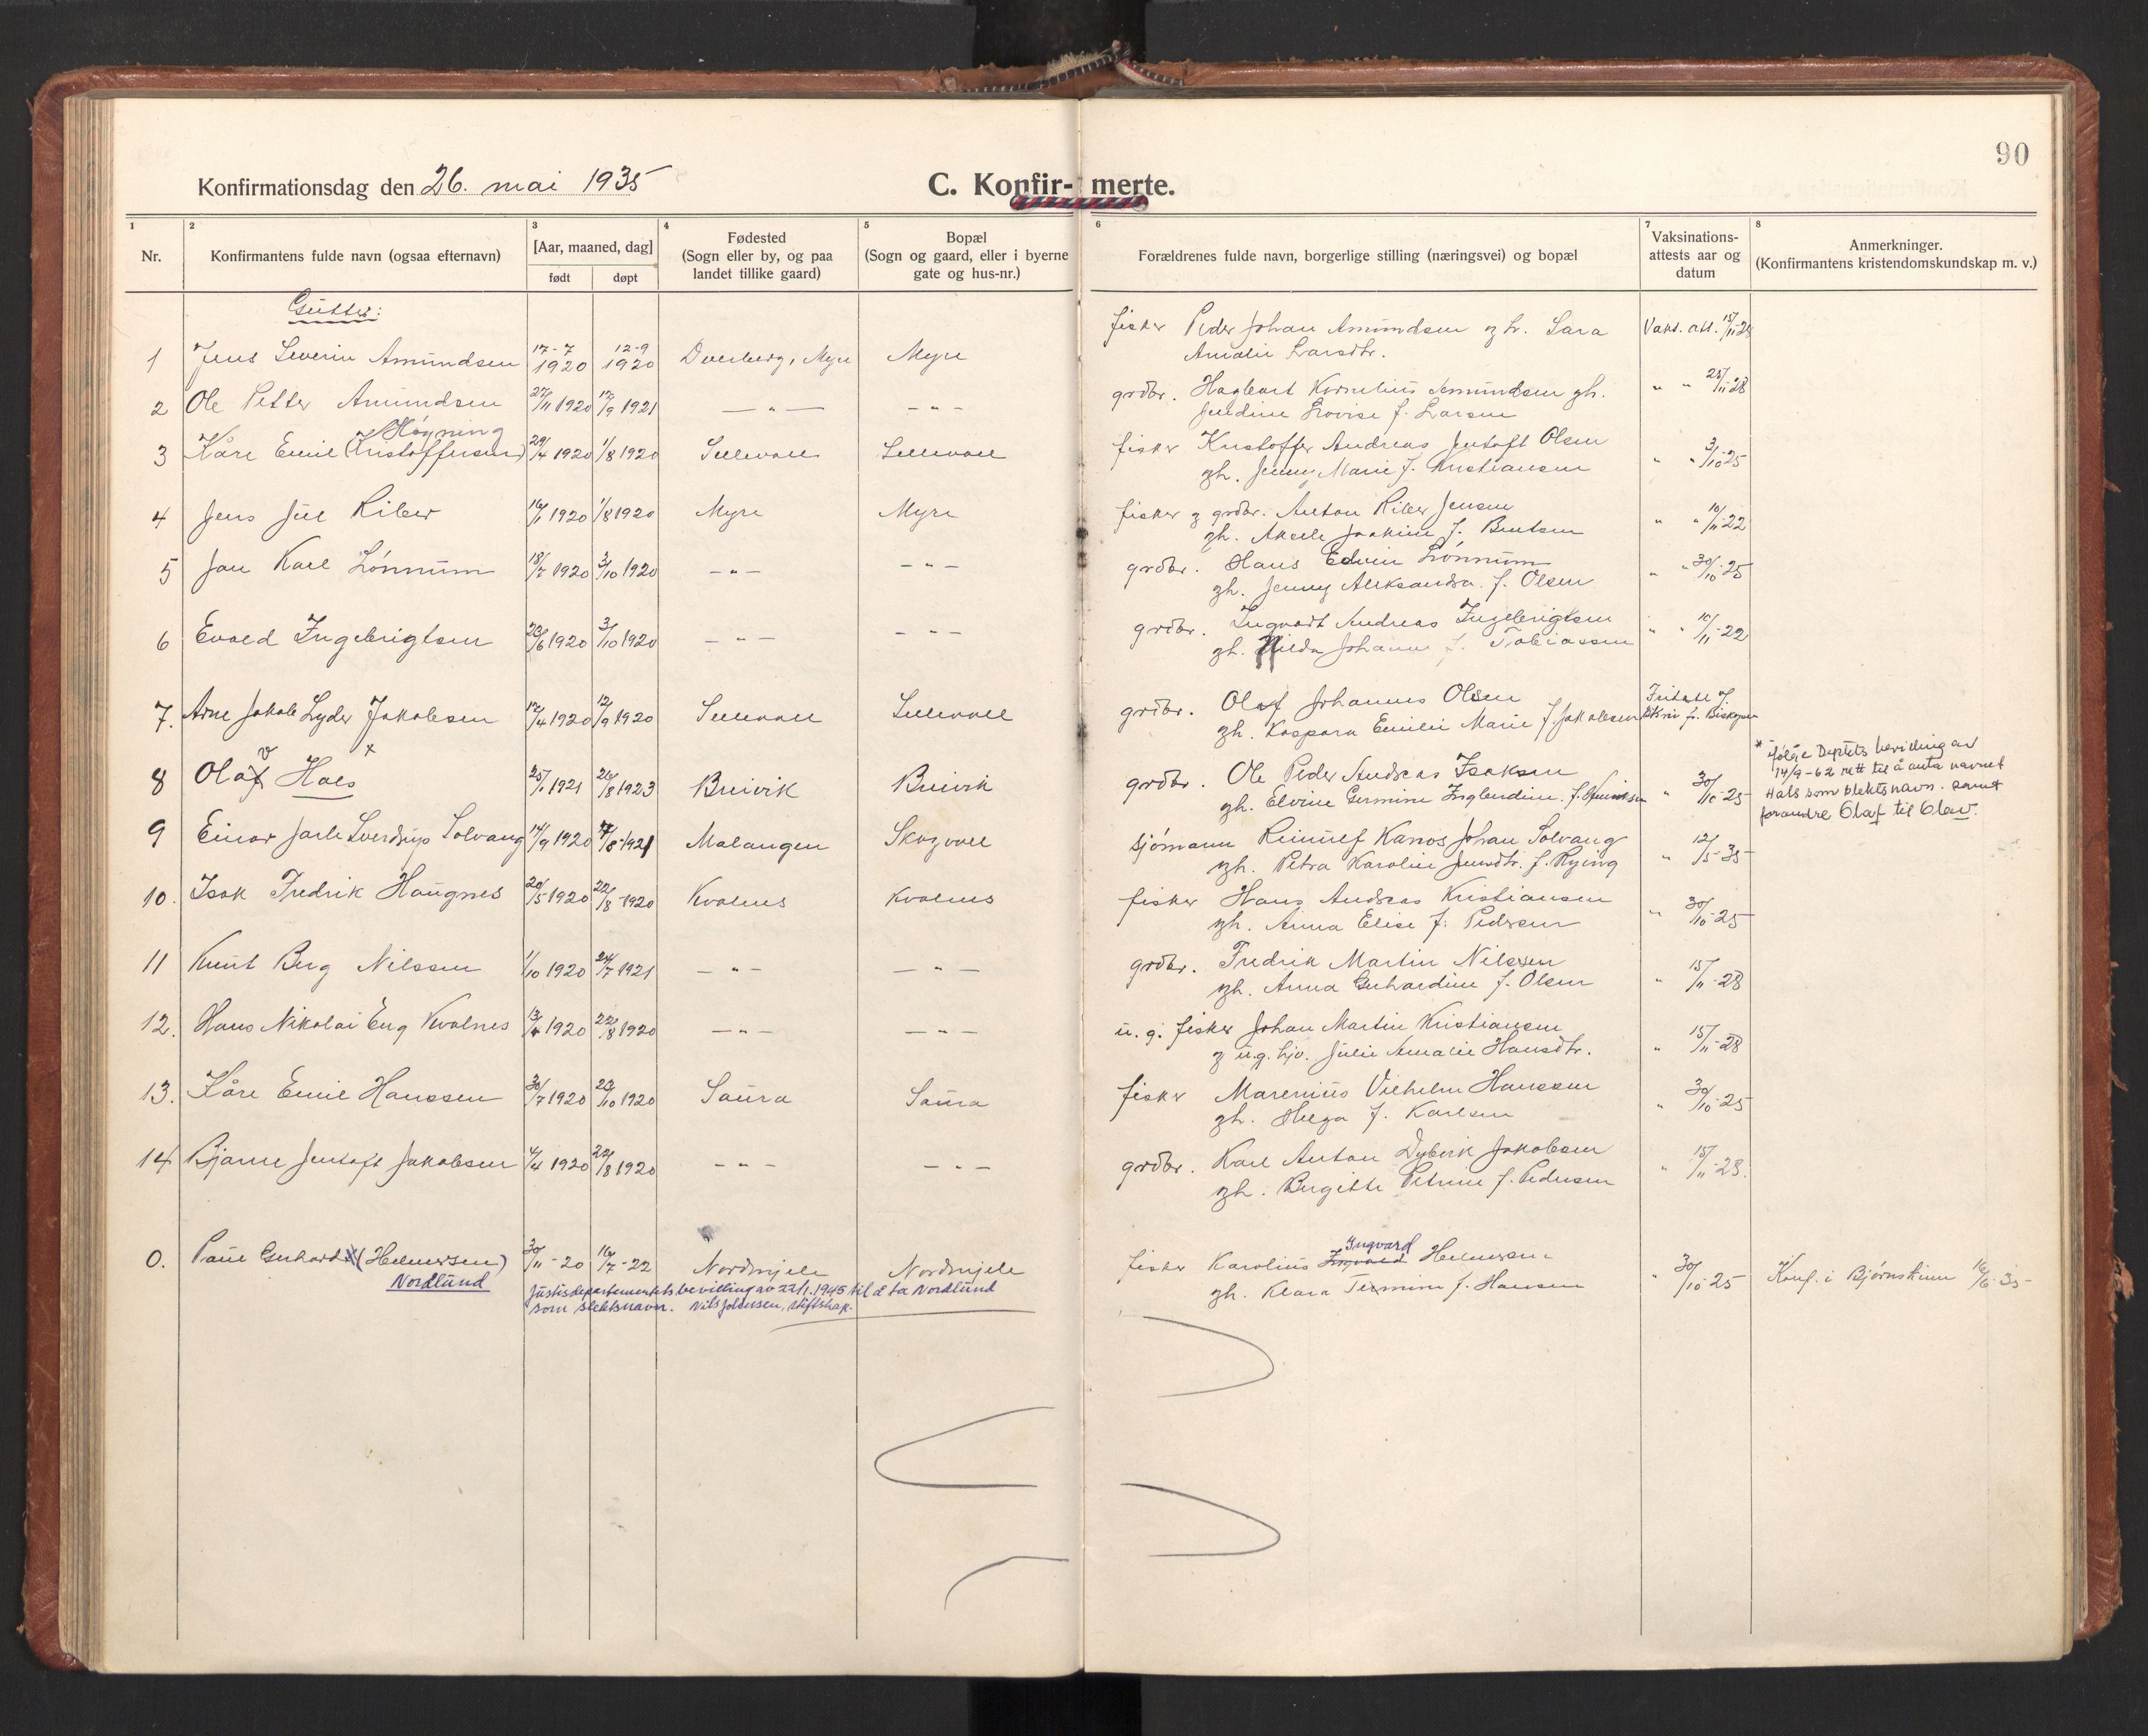 90
Konfirmationsdag den 26. mai 1935
C. Konfir- merte.
1 2 3 4 5 6 7 8
Nr.
Konfirmantens fulde navn (ogsaa efternavn)
[Aar, maaned, dag]
født døpt
Fødested
(Sogn eller by, og paa
landet tillike gaard)
Bopæl
(Sogn og gaard, eller i byerne
gate og hus-nr.)
Forældrenes fulde navn, borgerlige stilling (næringsvei) og bopæl
Vaksinations-
attests aar og
datum
Anmerkninger.
(Konfirmantens kristendomskundskap m. v.)
Gutter:
1 Jens Severin Amundsen 17-7 1920 12-9 1920 Dverberg, Myre Myre fisker Peder Johan Amundsen og h. Sara Vaks. att. 15/11-28
Amalie Larsdtr.
2 Ole Petter Amundsen 27/11 1920 17/9 1921 — " — — " — grdbr. Hagbart Kornelius Amundsen gh. " " 25/11-28
Jendine Lovise f. Larsen
Høyning
3 Kåre Emil (Kristoffersen) 29/4 1920 1/8 1920 Sellevoll Sellevoll fisker Kristoffer Andreas Jentoft Olsen " " 3/10-25
gh. Jenny Marie f. Kristiansen
4 Jens Jul Riber 14/1 1920 1/8 1920 Myre Myre fisker og grdbr. Anton Riber Jensen " " 10/11-22
gh. Akselle Joakime f. Bentsen
5 Jan Karl Lønnum 18/7 1920 3/10 1920 — " — — " — grdbr. Hans Edvin Lønnum " " 30/10-25
gh. Jenny Aleksandra f. Olsen
6 Evald Ingebrigtsen 23/6 1920 3/10 1920 — " — — " — grdbr. Ingvart Andreas Ingebrigtsen " " 10/11-22
gh. Hilda Johanne f. Tobiassen
7. Arne Jakob Lyder Jakobsen 12/4 1920 12/9 1920 Sellevoll Sellevoll grdbr. Olaf Johannes Olsen Fritatt
gh. Kaspara Emilie Marie f. Jakobsen fr. Biskopen
v x
8 Olaf Hals 25/1 1921 26/8 1923 Breivik Breivik grdbr. Ole Peder Andreas Isaksen " 30/10-25
gh. Elvine Germine Inglendine f.
* ifølge Deptets bevilling av
14/9-62 rett til å anta navnet
Hals som slektsnavn. samt
forandre Olaf til Olav.
9 Einar Jarle Sverdrup Solvang 14/9 1920 7/8-1921 Malangen Skogvoll sjømann Reinulf Kanos Johan Solvang " 12/5-35
gh. Petra Karoline Jensdtr. f. Rying
10. Isak Fredrik Haugnes 20/5 1920 22/8-1920 Kvalnes Kvalnes fisker Hans Andreas Kristiansen " 30/10-25
gh. Anna Elise f. Pedersen
11 Knut Berg Nilssen 1/10 1920 24/7 1921 — " — — " — grdbr. Fredrik Martin Nilssen " 15/11-28
gh. Anna Gerhardine f. Olsen
12. Hans Nikolai Eng Kvalnes 13/4 1920 22/8 1920 — " — — " — u. g. fisker Johan Martin Kristiansen " 15/11-28
og u.g. hjv. Julie Amalie Hansdtr.
13. Kåre Emil Hanssen 30/7 1920 23/10 1920 Saura Saura fisker Marenius Vilhelm Hanssen " 30/10-25
gh. Helga f. Karlsen
14 Bjarne Jentoft Jakobsen 4/4 1920 22/8 1920 — " — — " — grdbr. Karl Anton Dybvik Jakobsen " 15/11-28.
gh. Bergitte Petrine f. Pedersen
Ingvard
0. Paul Gerhard (Helmersen) 30/11-20 16/7-22 Nordmjele Nordmjele fisker Karolius Ingvald Helmersen " 30/10-25 Konf. i Bjørnskinn 16/6-35
Nordlund gh. Klara Termine f. Hansen
Justisdepartementets bevilling av 22/1.1945 til å ta Nordlund
som slektsnavn. Nils Johnsen, stiftskap.